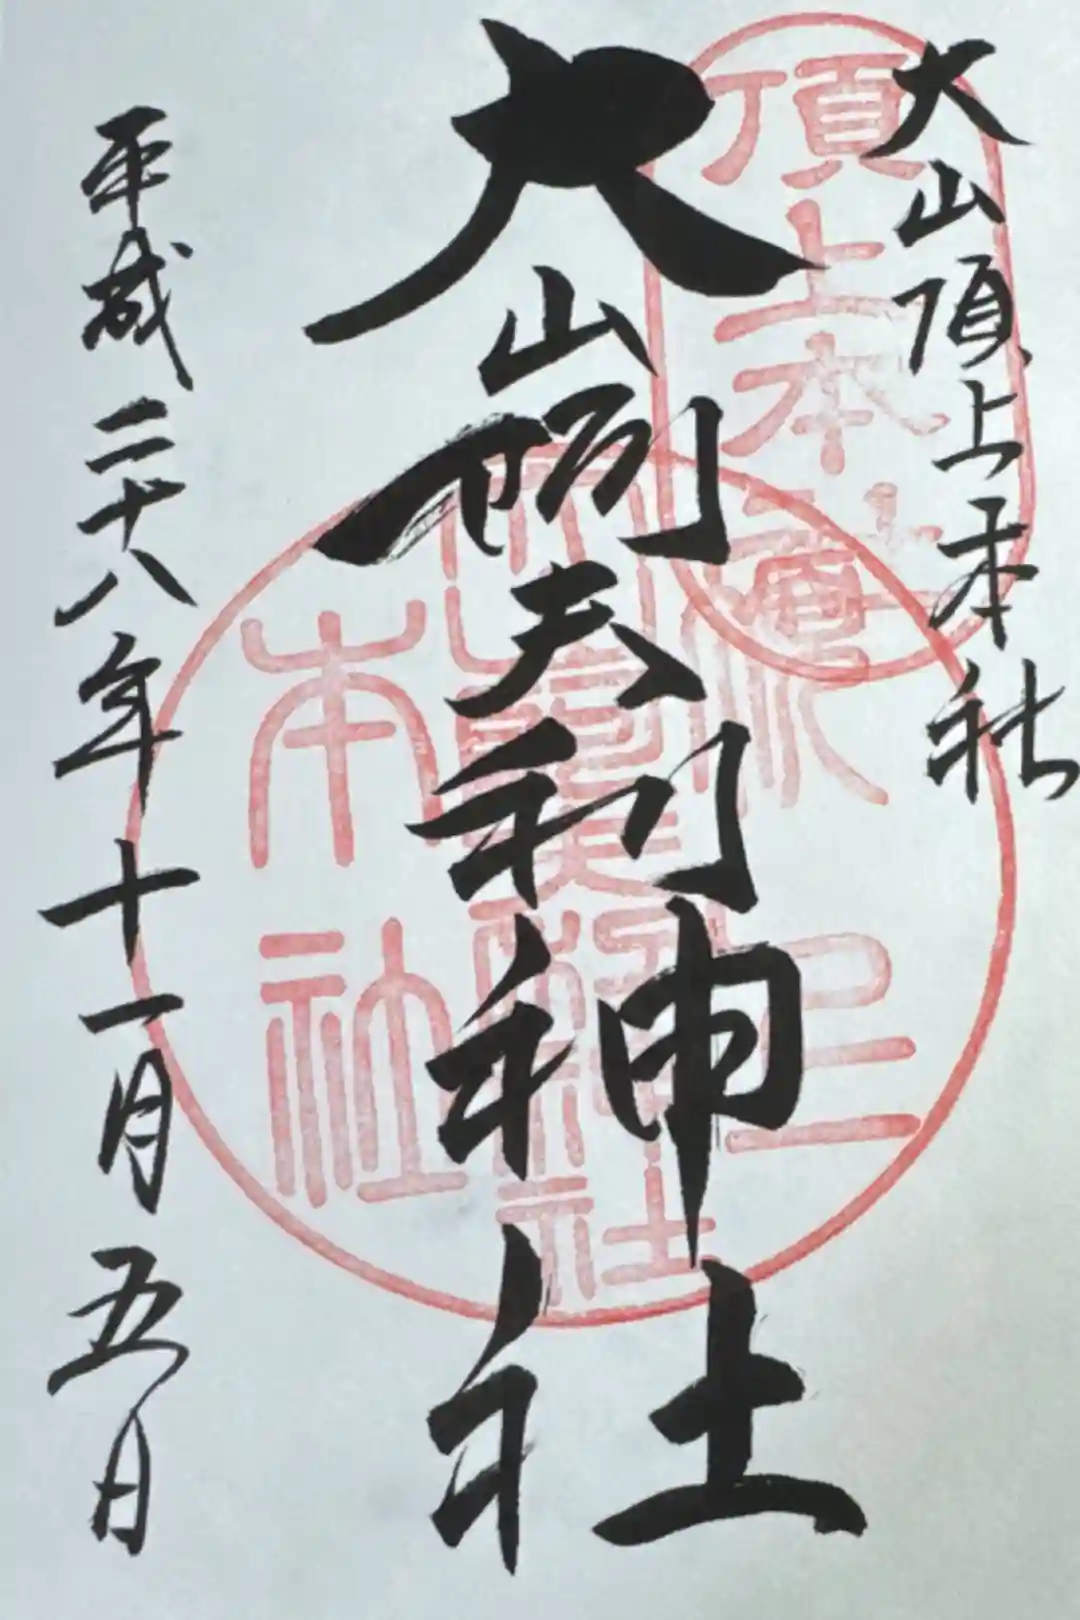 大山頂上本社
大山阿夫利神社
平成二十八年十一月五日
頂上本社
本社